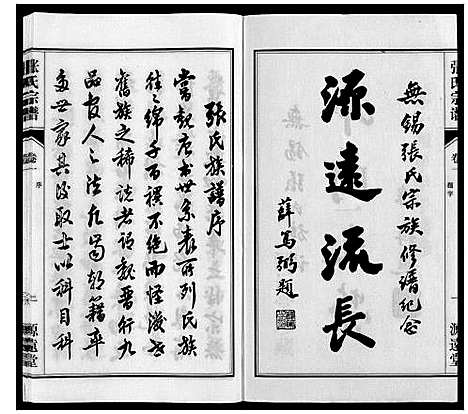 张氏宗谱
卷一
題字
一
源遠堂
無錫張氏宗族修譜纪念
源遠流長
薛篤弼題
張氏族譜序
嘗觀唐書世系表所列氏族
往之綿千百禩不絶而怪後世
舊族之稀說者謂魏晋行九
品官人之法凡蜀朝籍率
多世家其後取士以科目科
张氏宗谱
卷一
序
一
源遠堂